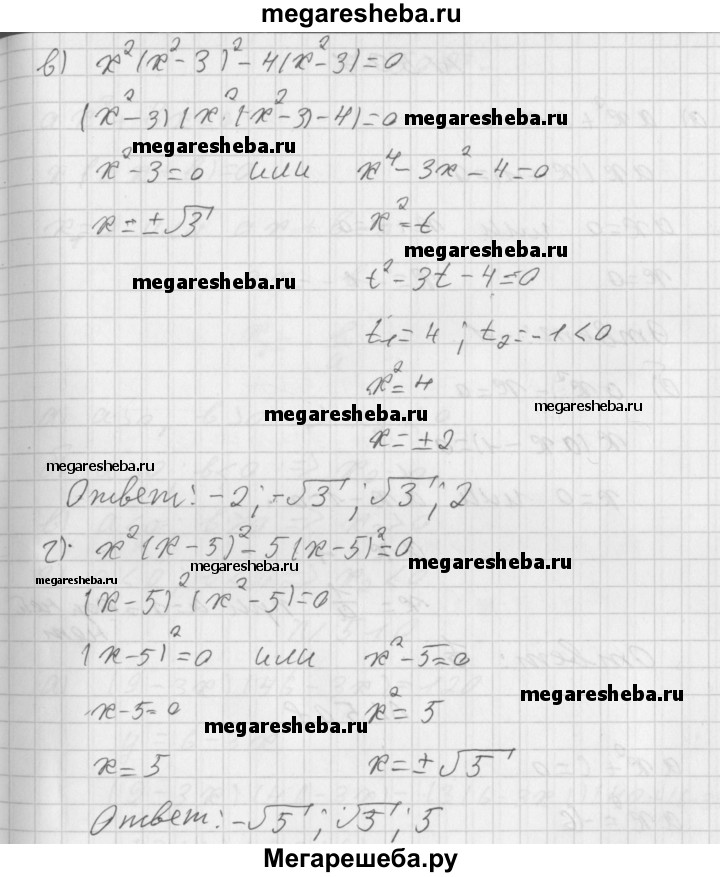 megaresheba.ru
в) x²(x²-3)²-4(x²-3)=0
(x²-3)(x²(x²-3)-4)=0 megaresheba.ru
megaresheba.ru
x²-3=0 или x⁴-3x²-4=0
x=±√3 x²=t
megaresheba.ru
megaresheba.ru t²-3t-4=0
t₁=4; t₂=-1<0
x²=4
megaresheba.ru megaresheba.ru
x=±2
megaresheba.ru
Ответ: -2; -√3; √3; 2
г). x²(x-5)²-5(x-5)²=0
megaresheba.ru megaresheba.ru
megaresheba.ru
(x-5)²(x²-5)=0
(x-5)²=0 или x²-5=0
megaresheba.ru
x-5=0 x²=5
megaresheba.ru
x=5 x=±√5
Ответ: -√5; √5; 5
Мегарешеба.ру